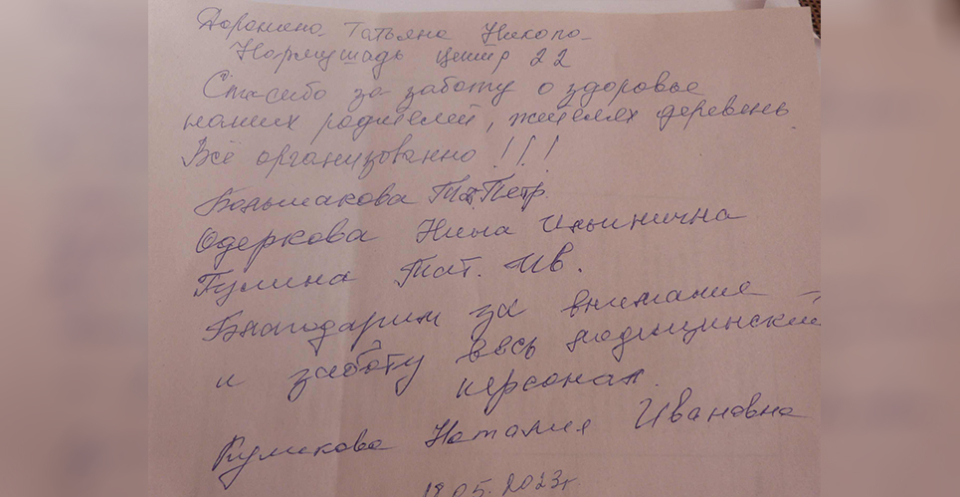 Татьяна Николо-
центр 22
Спасибо за заботу о здоровье
наших родителей, жителях деревень
Всё организованно!!!
Большакова Тат. Петр.
Одеркова Нина Ильинична
Гулина Тат. Ив.
Благодарим за внимание –
и заботу весь медицинский
персонал.
Куликова Наталия Ивановна
18.05.2023г